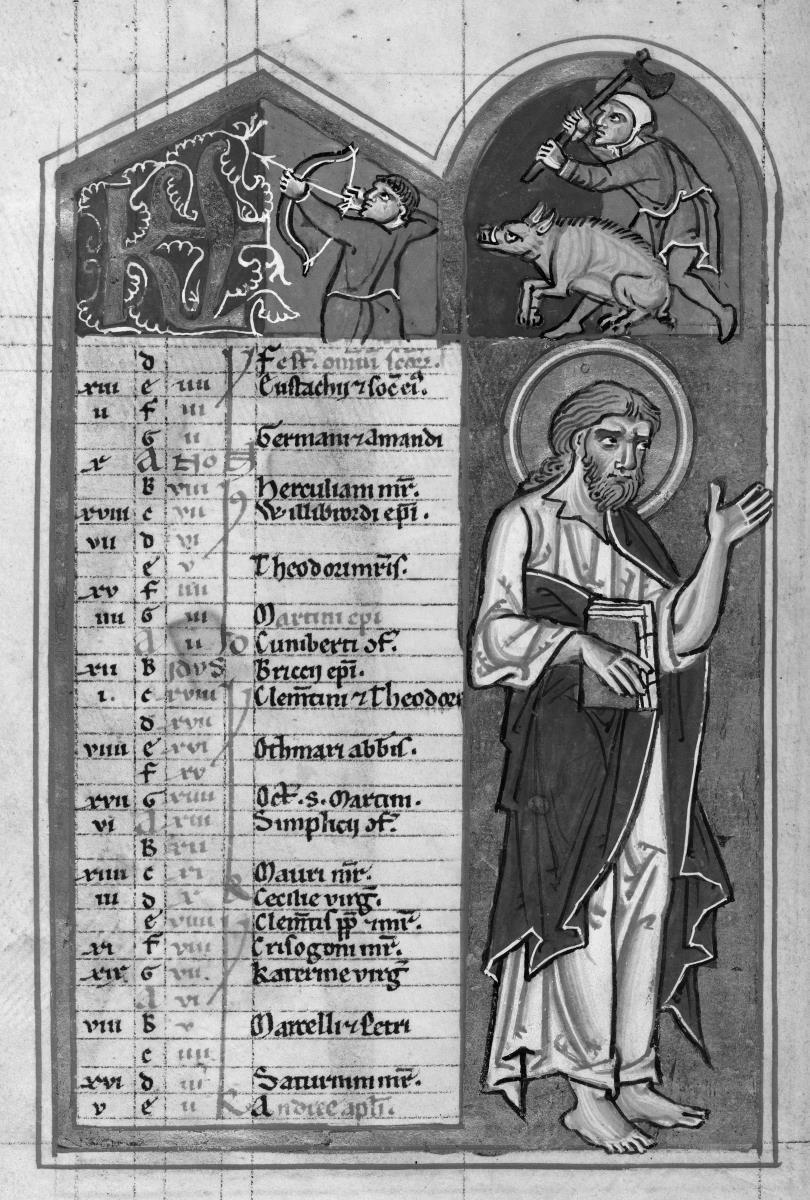 KL
d Fest. omniū scōꝝ.
xiii e iiii Eustachij ⁊ soc̄ ei⁹.
ii f iii
G ii Germani ⁊ Amandi
x A No
B viii Herculiani mr̄.
xviii c vii Willibrordi ep̄i.
vii d vi
e v Theodori mr̄is.
xv f iiii
iiii G iii Martini epi
A ii Cuniberti ↄf.
xii B idvs Briccij ep̄i.
i. c xviii Clem̄tini ⁊ Theodori
d xvii
viiii e xvi Othmari abb̄is.
f xv
xvii G xiiii Oct̄. s. Martini.
vi A xiii Simplicij ↄf.
B xii
xiiii c xi Mauri mr̄.
iii d x Cecilie virg̅.
e viiii Clem̄tis pp̄ ⁊ mr̄.
xi f viii Crisogoni mr̄.
xix G vii. Katerine virg̅
A vi
viii B v Marcelli ⁊ Petri
c iiii
xvi d iii Saturnini mr̄.
v e ii Andree apl̄i.